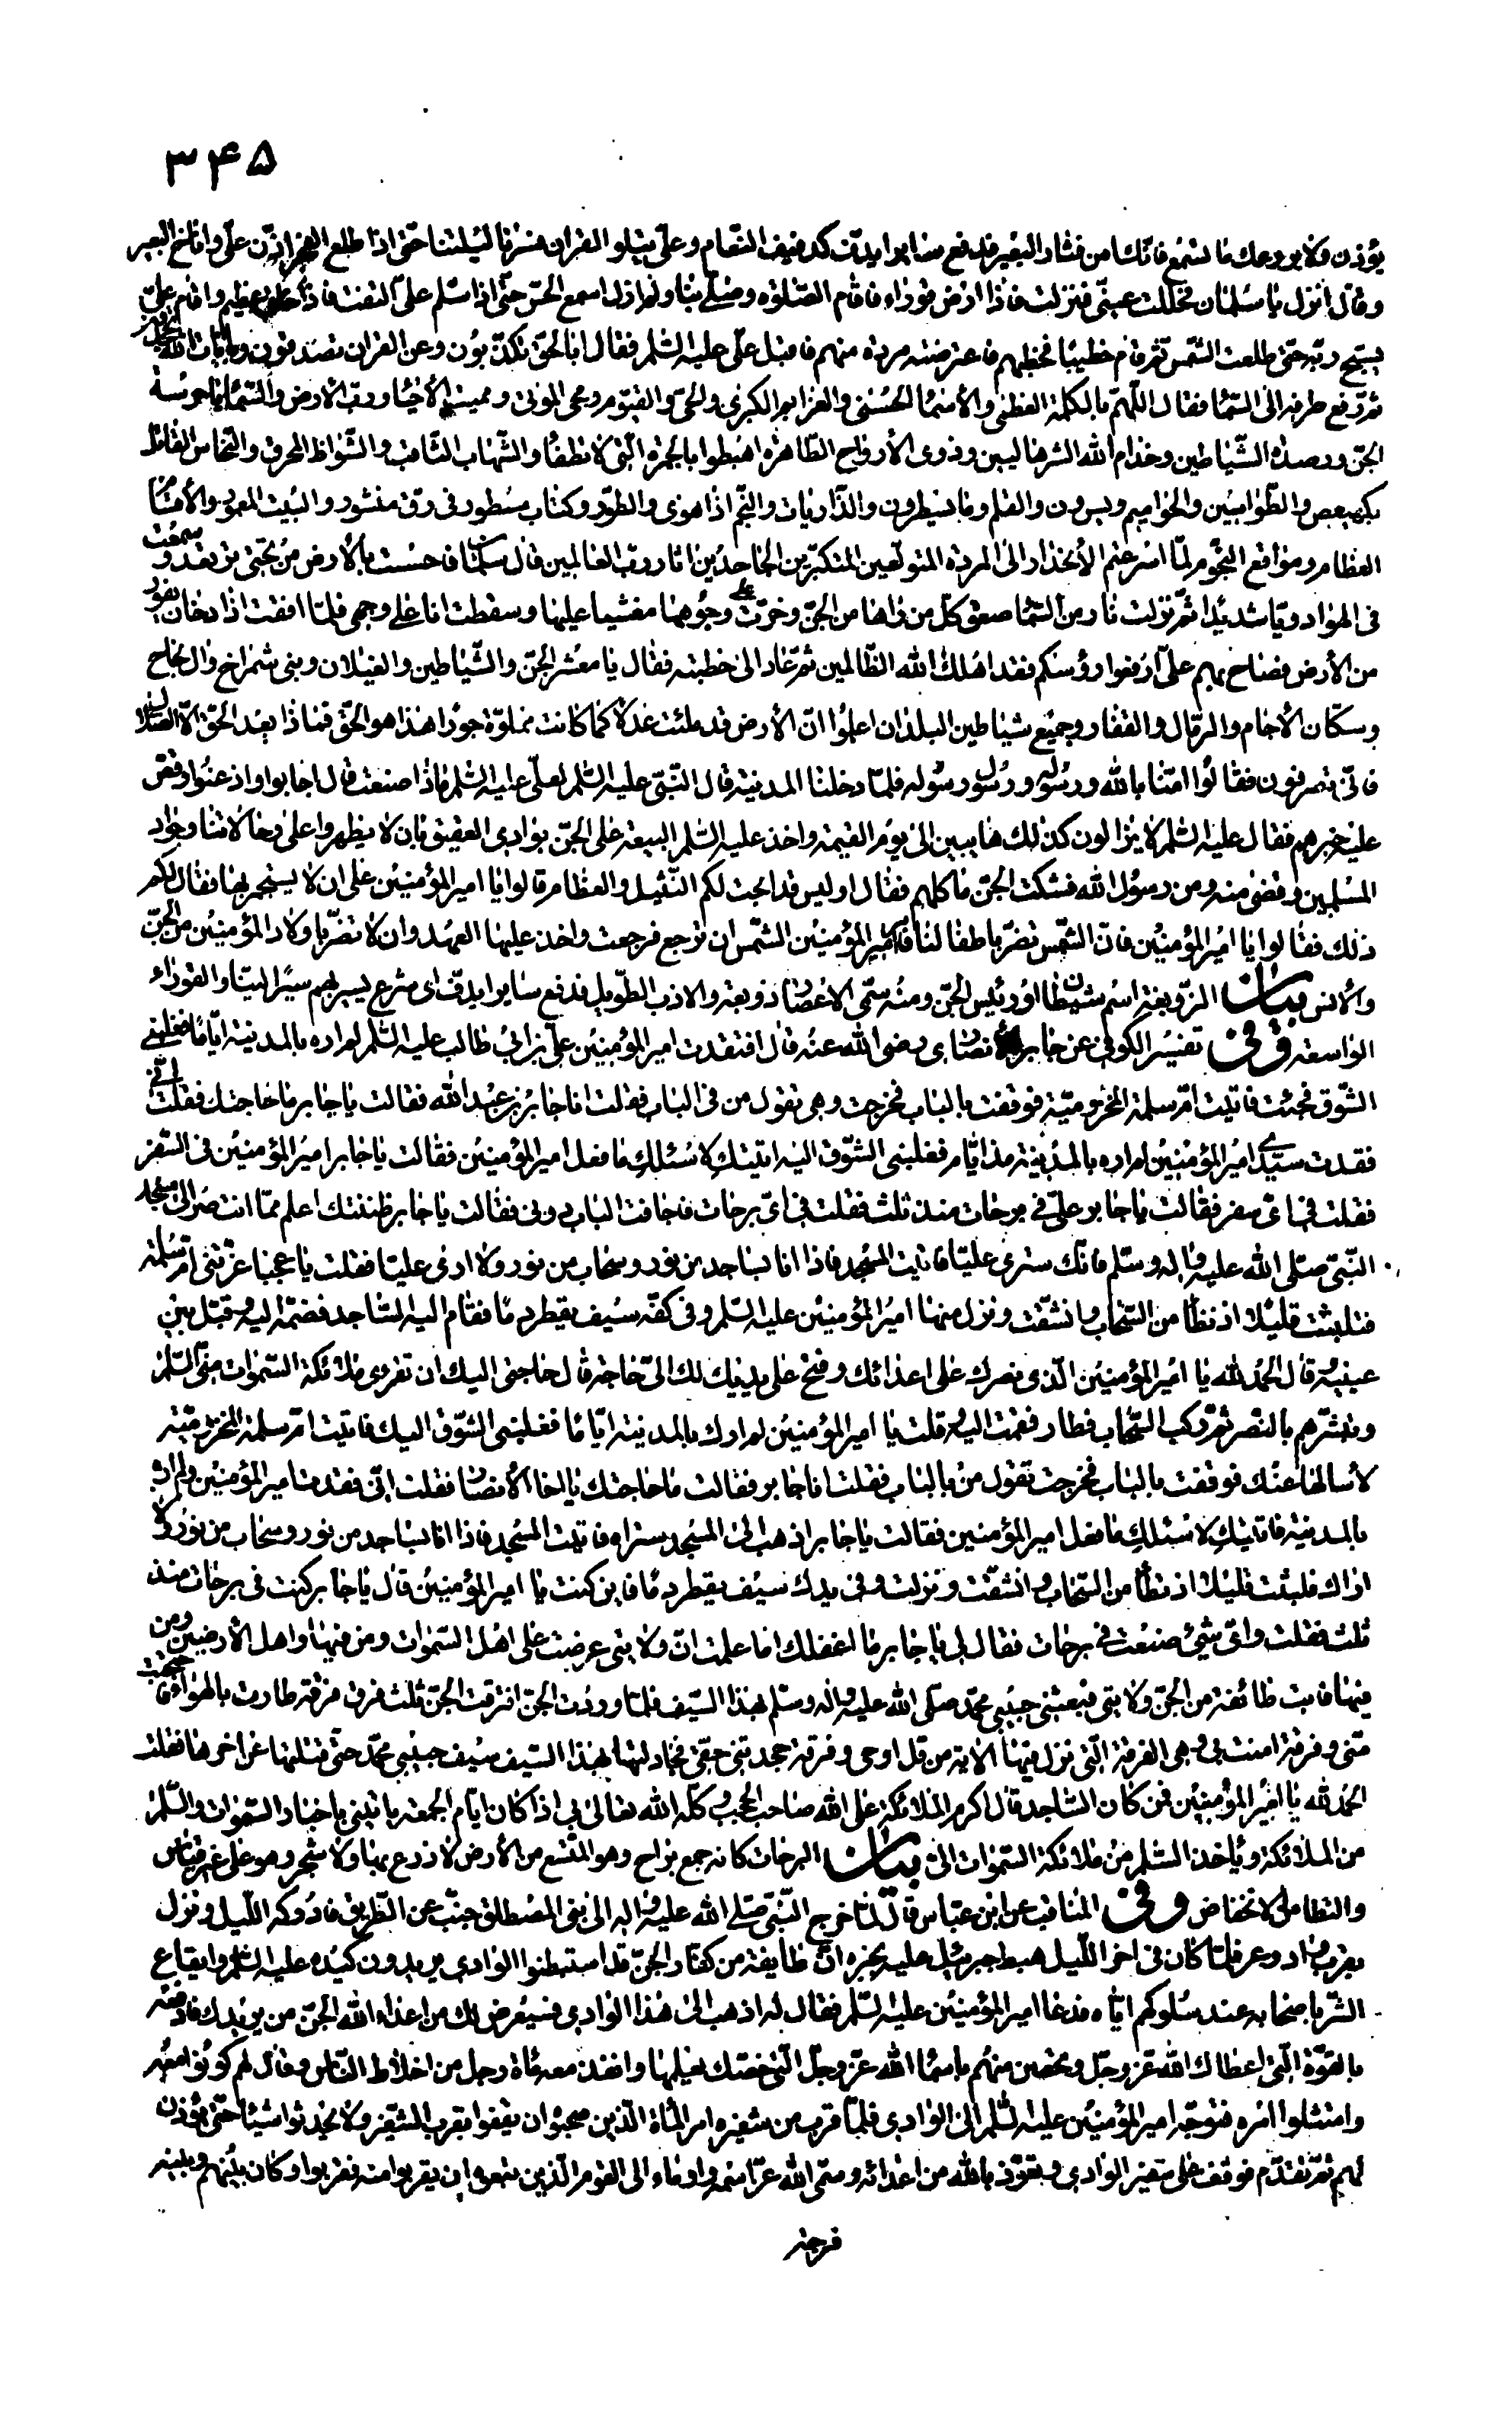 ٣۴۵
يؤذن ولا يروعك ما تسمع فانك امن فثار البعير فدفع سايرا يدف كدفيف النعام وعلى يتلو القران فسرنا ليلتنا حتى اذا طلع الفجر اذن على واناخ البعير
وقال انزل يا سلمان فحللت عينى فنزلت فاذا ارض قوراء فاقام الصلوة وصلى بنا ولم ازل اسمع الحس حتى اذا سلم على التفت فاذا خلق عظيم واقام على
يسبح ربه حتى طلعت الشمس ثم قام خطيبا فخطبهم فاعترضته مردة منهم فاقبل على عليه السلم فقال ابالحق تكذبون وعن القران تصدفون وبايات الله تجحدون
ثم رفع طرفه الى السماء فقال اللهم بالكلمة العظمى والأسماء الحسنى والعزائم الكبرى والحى القيوم ومحى الموتى ومميت الأحياء ورب الأرض والسماء يا حرسة
الجن ورصدة الشياطين وخدام الله الشرهاليين وذوى الأرواح الطاهرة اهبطوا بالجمرة التى لا تطفأ والشهاب الثاقب والشواظ المحرق والنحاس القاتل
بكهيعص والطواسين والحواميم ويس ون والقلم وما يسطرون والذاريات والنجم اذا هوى والطور وكتاب مسطور فى رق منشور والبيت المعمور والأقسام
العظام ومواقع النجوم لما اسرعتم الانحدار الى المردة المتولعين المتكبرين الجاحدين اثار رب العالمين قال سلمان فاحسست بالأرض من تحتى ترتعد وسمعت
فى الهواء دويا شديدا ثم نزلت نار من السماء صعق كل من راها من الجن وخرت على وجوهها مغشيا عليها وسقطت انا على وجهى فلما افقت اذا دخان يفور
من الأرض فصاح بهم على ارفعوا رؤسكم فقد اهلك الله الظالمين ثم عاد الى خطبته فقال يا معشر الجن والشياطين والغيلان وبنى شمراخ وال نجاح
وسكان الاجام والرمال والقفار وجميع شياطين البلدان اعلموا ان الأرض قد ملئت عدلا كما كانت مملوة جورا هذا هو الحق فماذا بعد الحق الا الضلال
فانى تصرفون فقالوا امنا بالله ورسوله وبرسول رسوله فلما دخلنا المدينة قال النبى عليه السلم لعلى عليه السلم ماذا صنعت قال اجابوا واذعنوا وقص
عليه خبرهم فقال عليه السلم لا يزالون كذلك هايبين الى يوم القيمة واخذ عليه السلم البيعة على الجن بوادى العقيق بان لا يظهروا على رحالاتنا وجواد
المسلمين وقضى منه ومن رسول الله فشكت الجن ماكلهم فقال اوليس قد ابحت لكم النثيل والعظام قالوا يا امير المؤمنين على ان لا يستجمر بها فقال لكم
ذلك فقالوا يا امير المؤمنين فان الشمس تضر باطفالنا فامر امير المؤمنين الشمس ان ترجع فرجعت واخذ عليها العهد وان لا تضر باولاد المؤمنين من الجن
والأنس بيان الزوبعة اسم شيطان او رئيس الجن ومنه سمى الاعصار زوبعة والازب الطويل فدفع سايرا يدف اى شرع يسير بهم سيرا لينا والقوراء
الواسعة وفى تفسير الكوفى عن جابر الأنصارى رضى الله عنه قال افتقدت امير المؤمنين على بن ابى طالب عليه السلم لم اره بالمدينة اياما فغلبنى
الشوق فجئت فاتيت ام سلمة المخزومية فوقفت بالباب فخرجت وهى تقول من فى الباب فقلت انا جابر بن عبد الله فقالت يا جابر ما حاجتك فقلت انى
فقدت سيدى امير المؤمنين لم اره بالمدينة مذ ايام فغلبنى الشوق اليه اتيتك لاسئلك ما فعل امير المؤمنين فقالت يا جابر امير المؤمنين فى السفر
فقلت فى اى سفر فقالت يا جابر على فى برحات منذ ثلث فقلت فى اى برحات فاجافت الباب دونى فقالت يا جابر ظننتك اعلم مما انت صر الى مسجد
النبى صلى الله عليه واله وسلم فانك سترى عليا فاتيت المسجد فاذا انا بساجد من نور وسحاب من نور ولا ارى عليا فقلت يا عجبا غرتنى ام سلمة
فتلبثت قليلا اذ تطامن السحاب وانشقت ونزل منها امير المؤمنين عليه السلم وفى كفه سيف يقطر دما فقام اليه الساجد فضمه اليه وقبل بين
عينيه وقال الحمد لله يا امير المؤمنين الذى نصرك على اعدائك وفتح على يديك لك الى حاجة قال حاجتى اليك ان تقرئ ملائكة السموات منى السلم
وتبشرهم بالنصر ثم ركب السحاب فطار فقمت اليه وقلت يا امير المؤمنين لم ارك بالمدينة اياما فغلبنى الشوق اليك فاتيت ام سلمة المخزومية
لأسالها عنك فوقفت بالباب فخرجت تقول من بالباب فقلت انا جابر فقالت ما حاجتك يا اخا الأنصار فقلت انى فقدت امير المؤمنين ولم اره
بالمدينة فاتيتك لاسئلك ما فعل امير المؤمنين فقالت يا جابر اذهب الى المسجد ستراه فاتيت المسجد فاذا انا بساجد من نور وسحاب من نور ولا
اراك فلبثت قليلا اذ تطامن السحاب وانشقت ونزلت وفى يدك سيف يقطر دما فاين كنت يا امير المؤمنين قال يا جابر كنت فى برحات منذ
ثلث فقلت واى شئ صنعت فى برحات فقال لى يا جابر ما اغفلك اما علمت ان ولايتى عرضت على اهل السموات ومن فيها واهل الأرضين ومن
فيها فابت طائفة من الجن ولايتى فبعثنى حبيبى محمد صلى الله عليه واله وسلم بهذا السيف فلما وردت الجن افترقت الجن ثلث فرق فرقة طارت بالهواء فاحتجبت
منى وفرقة امنت بى وهى الفرقة التى نزل فيها الاية من قل اوحى وفرقة جحدتنى حقى فجادلتها بهذا السيف سيف حبيبى محمد حتى قتلتها عن اخرها فقلت
الحمد لله يا امير المؤمنين فمن كان الساجد قال اكرم الملائكة على الله صاحب الحجب وكله الله تعالى بى اذا كان ايام الجمعة ياتينى باخبار السموات والسلم
من الملائكة وياخذ السلم من ملائكة السموات الى بيان البرحات كانه جمع براح وهو المتسع من الأرض لا زرع بها ولا شجر وهو على غير قياس
والتطامن الانخفاض وفى المناقب عن ابن عباس قال لما خرج النبى صلى الله عليه واله الى بنى المصطلق جنب عن الطريق فادركه الليل ونزل
بقرب واد وعر فلما كان فى اخر الليل هبط جبرئيل عليه يخبره ان طايفة من كفار الجن قد استبطنوا الوادى يريدون كيده عليه السلم وايقاع
الشر باصحابه عند سلوكهم اياه فدعا امير المؤمنين عليه السلم فقال له اذهب الى هذا الوادى فسيعرض لك من اعداء الله الجن من يريدك فادفعه
بالقوة التى اعطاك الله عز وجل وتحصن منهم باسماء الله عز وجل التى خصك بعلمها وانفذ معه مأة رجل من اخلاط الناس وقال لهم كونوا معه
وامتثلوا امره فتوجه امير المؤمنين عليه السلم الى الوادى فلما قرب من شفيره امر المأة الذين صحبوه ان يقفوا بقرب الشفير ولا يحدثوا شيئا حتى يؤذن
لهم ثم تقدم فوقف على شفير الوادى وتعوذ بالله من اعدائه وسمى الله عز اسمه واوماء الى القوم الذين تبعوه ان يقربوا منه فقربوا وكان بينهم وبينه
فرجة